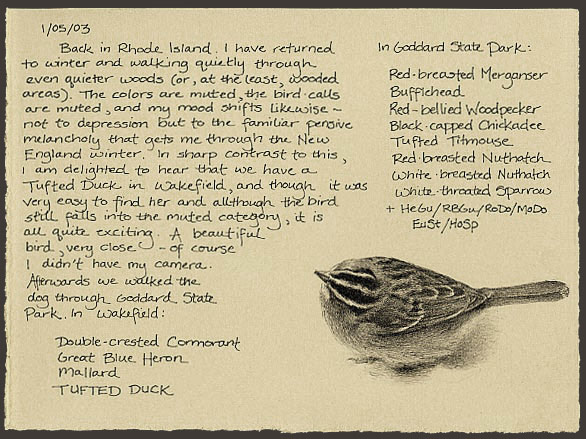 1/05/03
Back in Rhode Island. I have returned
to winter and walking quietly through
even quieter woods (or, at the least, wooded
areas). The colors are muted, the bird calls
are muted, and my mood shifts likewise –
not to depression but to the familiar pensive
melancholy that gets me through the New
England winter. In sharp contrast to this,
I am delighted to hear that we have a
Tufted Duck in Wakefield, and though it was
very easy to find her and allthough the bird
still falls into the muted category, it is
all quite exciting. A beautiful
bird, very close – of course
I didn't have my camera.
Afterwards we walked the
dog through Goddard State
Park. In Wakefield:
Double-crested Cormorant
Great Blue Heron
Mallard
TUFTED DUCK
In Goddard State Park:
Red-breasted Merganser
Bufflehead
Red-bellied Woodpecker
Black-capped Chickadee
Tufted Titmouse
Red-breasted Nuthatch
White-breasted Nuthatch
White-throated Sparrow
+ HeGu/RBGu/RoDo/MoDo
EuSt/HoSp